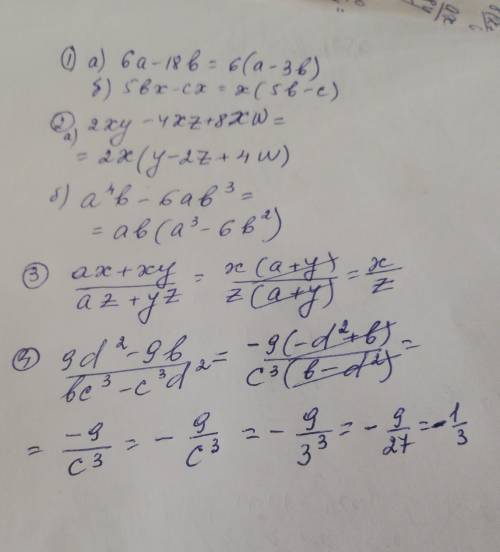 ① а) 6a-18b = 6(a-3b)
б) 5bx-cx = x(5b-c)
② а) 2xy-4xz+8xw=
=2x(y-2z+4w)
б) a⁴b-6ab³=
=ab(a³-6b²)
③ (ax+xy)/(az+yz) = x(a+y)/z(a+y) = x/z
④ (9d²-9b)/(bc³-c³d²) = -9(-d²+b)/c³(b-d²) =
= -9/c³ = -9/c³ = -9/3³ = -9/27 = -1/3